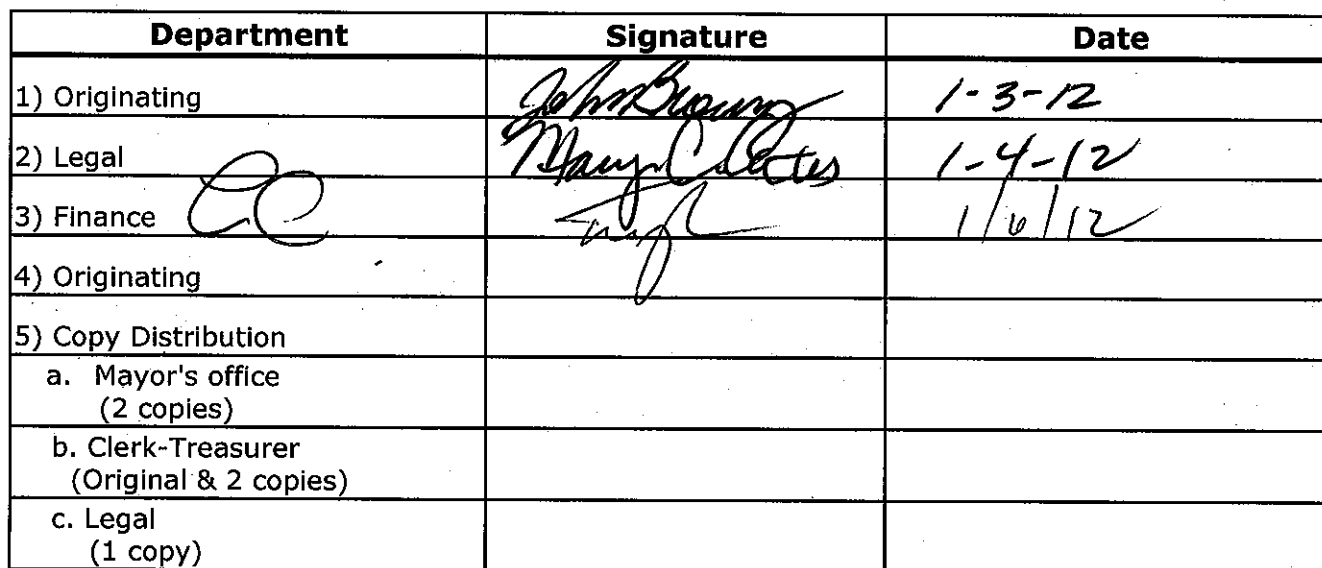 Department Signature Date
1) Originating John Brown 1-3-12
2) Legal Mary C 1-4-12
3) Finance 1/6/12
4) Originating
5) Copy Distribution
a. Mayor's office
(2 copies)
b. Clerk-Treasurer
(Original & 2 copies)
c. Legal
(1 copy)